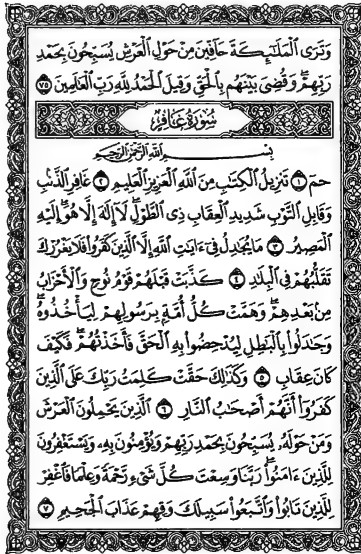 وَتَرَى الْمَلَٰٓئِكَةَ حَآفِّينَ مِنْ حَوْلِ الْعَرْشِ يُسَبِّحُونَ بِحَمْدِ
رَبِّهِمْ وَقُضِىَ بَيْنَهُم بِالْحَقِّ وَقِيلَ الْحَمْدُ لِلَّهِ رَبِّ الْعَٰلَمِينَ ٧٥
سُورَةُ غَافِرٍ
بِسْمِ اللَّهِ الرَّحْمَٰنِ الرَّحِيمِ
حمٓ ١ تَنزِيلُ الْكِتَٰبِ مِنَ اللَّهِ الْعَزِيزِ الْعَلِيمِ ٢ غَافِرِ الذَّنۢبِ
وَقَابِلِ التَّوْبِ شَدِيدِ الْعِقَابِ ذِى الطَّوْلِ لَآ إِلَٰهَ إِلَّا هُوَ إِلَيْهِ
الْمَصِيرُ ٣ مَا يُجَٰدِلُ فِىٓ ءَايَٰتِ اللَّهِ إِلَّا الَّذِينَ كَفَرُوا۟ فَلَا يَغْرُرْكَ
تَقَلُّبُهُمْ فِى الْبِلَٰدِ ٤ كَذَّبَتْ قَبْلَهُمْ قَوْمُ نُوحٍ وَالْأَحْزَابُ
مِنۢ بَعْدِهِمْ وَهَمَّتْ كُلُّ أُمَّةٍۭ بِرَسُولِهِمْ لِيَأْخُذُوهُ
وَجَٰدَلُوا۟ بِالْبَٰطِلِ لِيُدْحِضُوا۟ بِهِ الْحَقَّ فَأَخَذْتُهُمْ فَكَيْفَ
كَانَ عِقَابِ ٥ وَكَذَٰلِكَ حَقَّتْ كَلِمَتُ رَبِّكَ عَلَى الَّذِينَ
كَفَرُوٓا۟ أَنَّهُمْ أَصْحَٰبُ النَّارِ ٦ الَّذِينَ يَحْمِلُونَ الْعَرْشَ
وَمَنْ حَوْلَهُۥ يُسَبِّحُونَ بِحَمْدِ رَبِّهِمْ وَيُؤْمِنُونَ بِهِۦ وَيَسْتَغْفِرُونَ
لِلَّذِينَ ءَامَنُوا۟ رَبَّنَا وَسِعْتَ كُلَّ شَىْءٍ رَّحْمَةً وَعِلْمًا فَاغْفِرْ
لِلَّذِينَ تَابُوا۟ وَاتَّبَعُوا۟ سَبِيلَكَ وَقِهِمْ عَذَابَ الْجَحِيمِ ٧